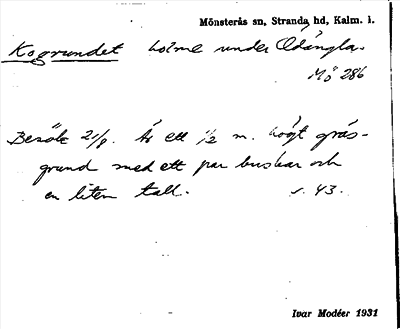 Mönsterås sn, Stranda hd, Kalm. l.
Kogrundet holme under Ödängla.
Mö 286
Besökt 21/8. Är ett 1/2 m. högt gräs-
grund med ett par buskar och
en liten tall. s. 43.
Ivar Modéer 1931